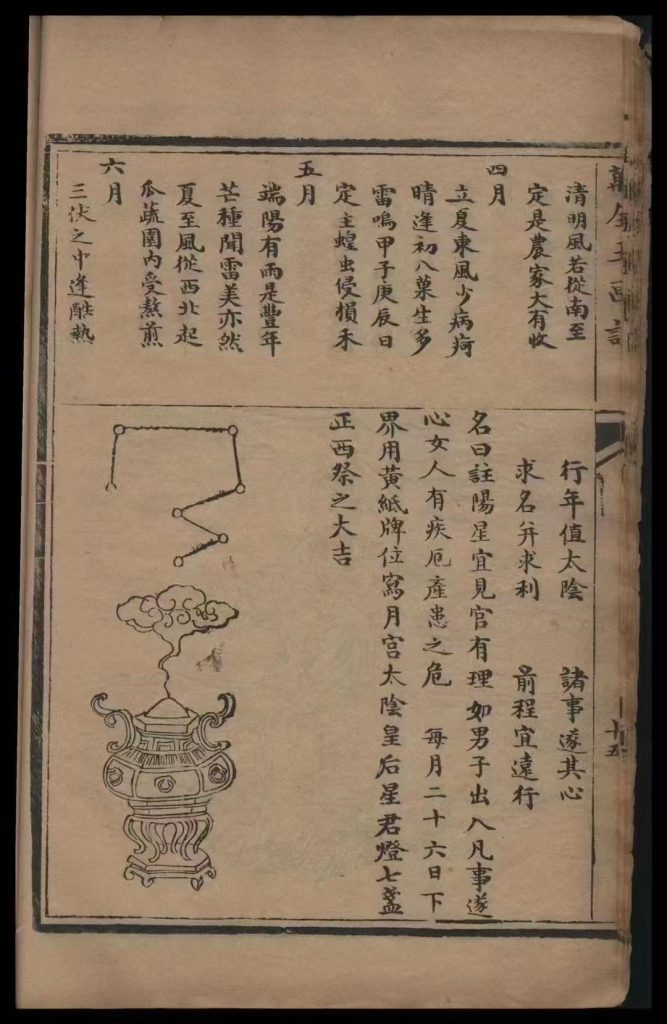 清明風若從南至
定是農家大有收
四月
立夏東風少病痾
晴逢初八菓生多
雷鳴甲子庚辰日
定主蝗虫侵損禾
五月
端陽有雨是豐年
芒種聞雷美亦然
夏至風從西北起
瓜蔬園內受熬煎
六月
三伏之中逢酷熱
行年值太陰　諸事遂其心
求名并求利　前程宜遠行
名曰註陽星宜見官有理如男子出入凡事遂
心女人有疾厄產患之危　每月二十六日下
界用黃紙牌位寫月宮太陰皇后星君燈七盞
正西祭之大吉
十五